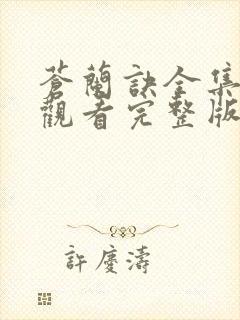 蒼蘭訣全集
觀看完整版
許慶濤